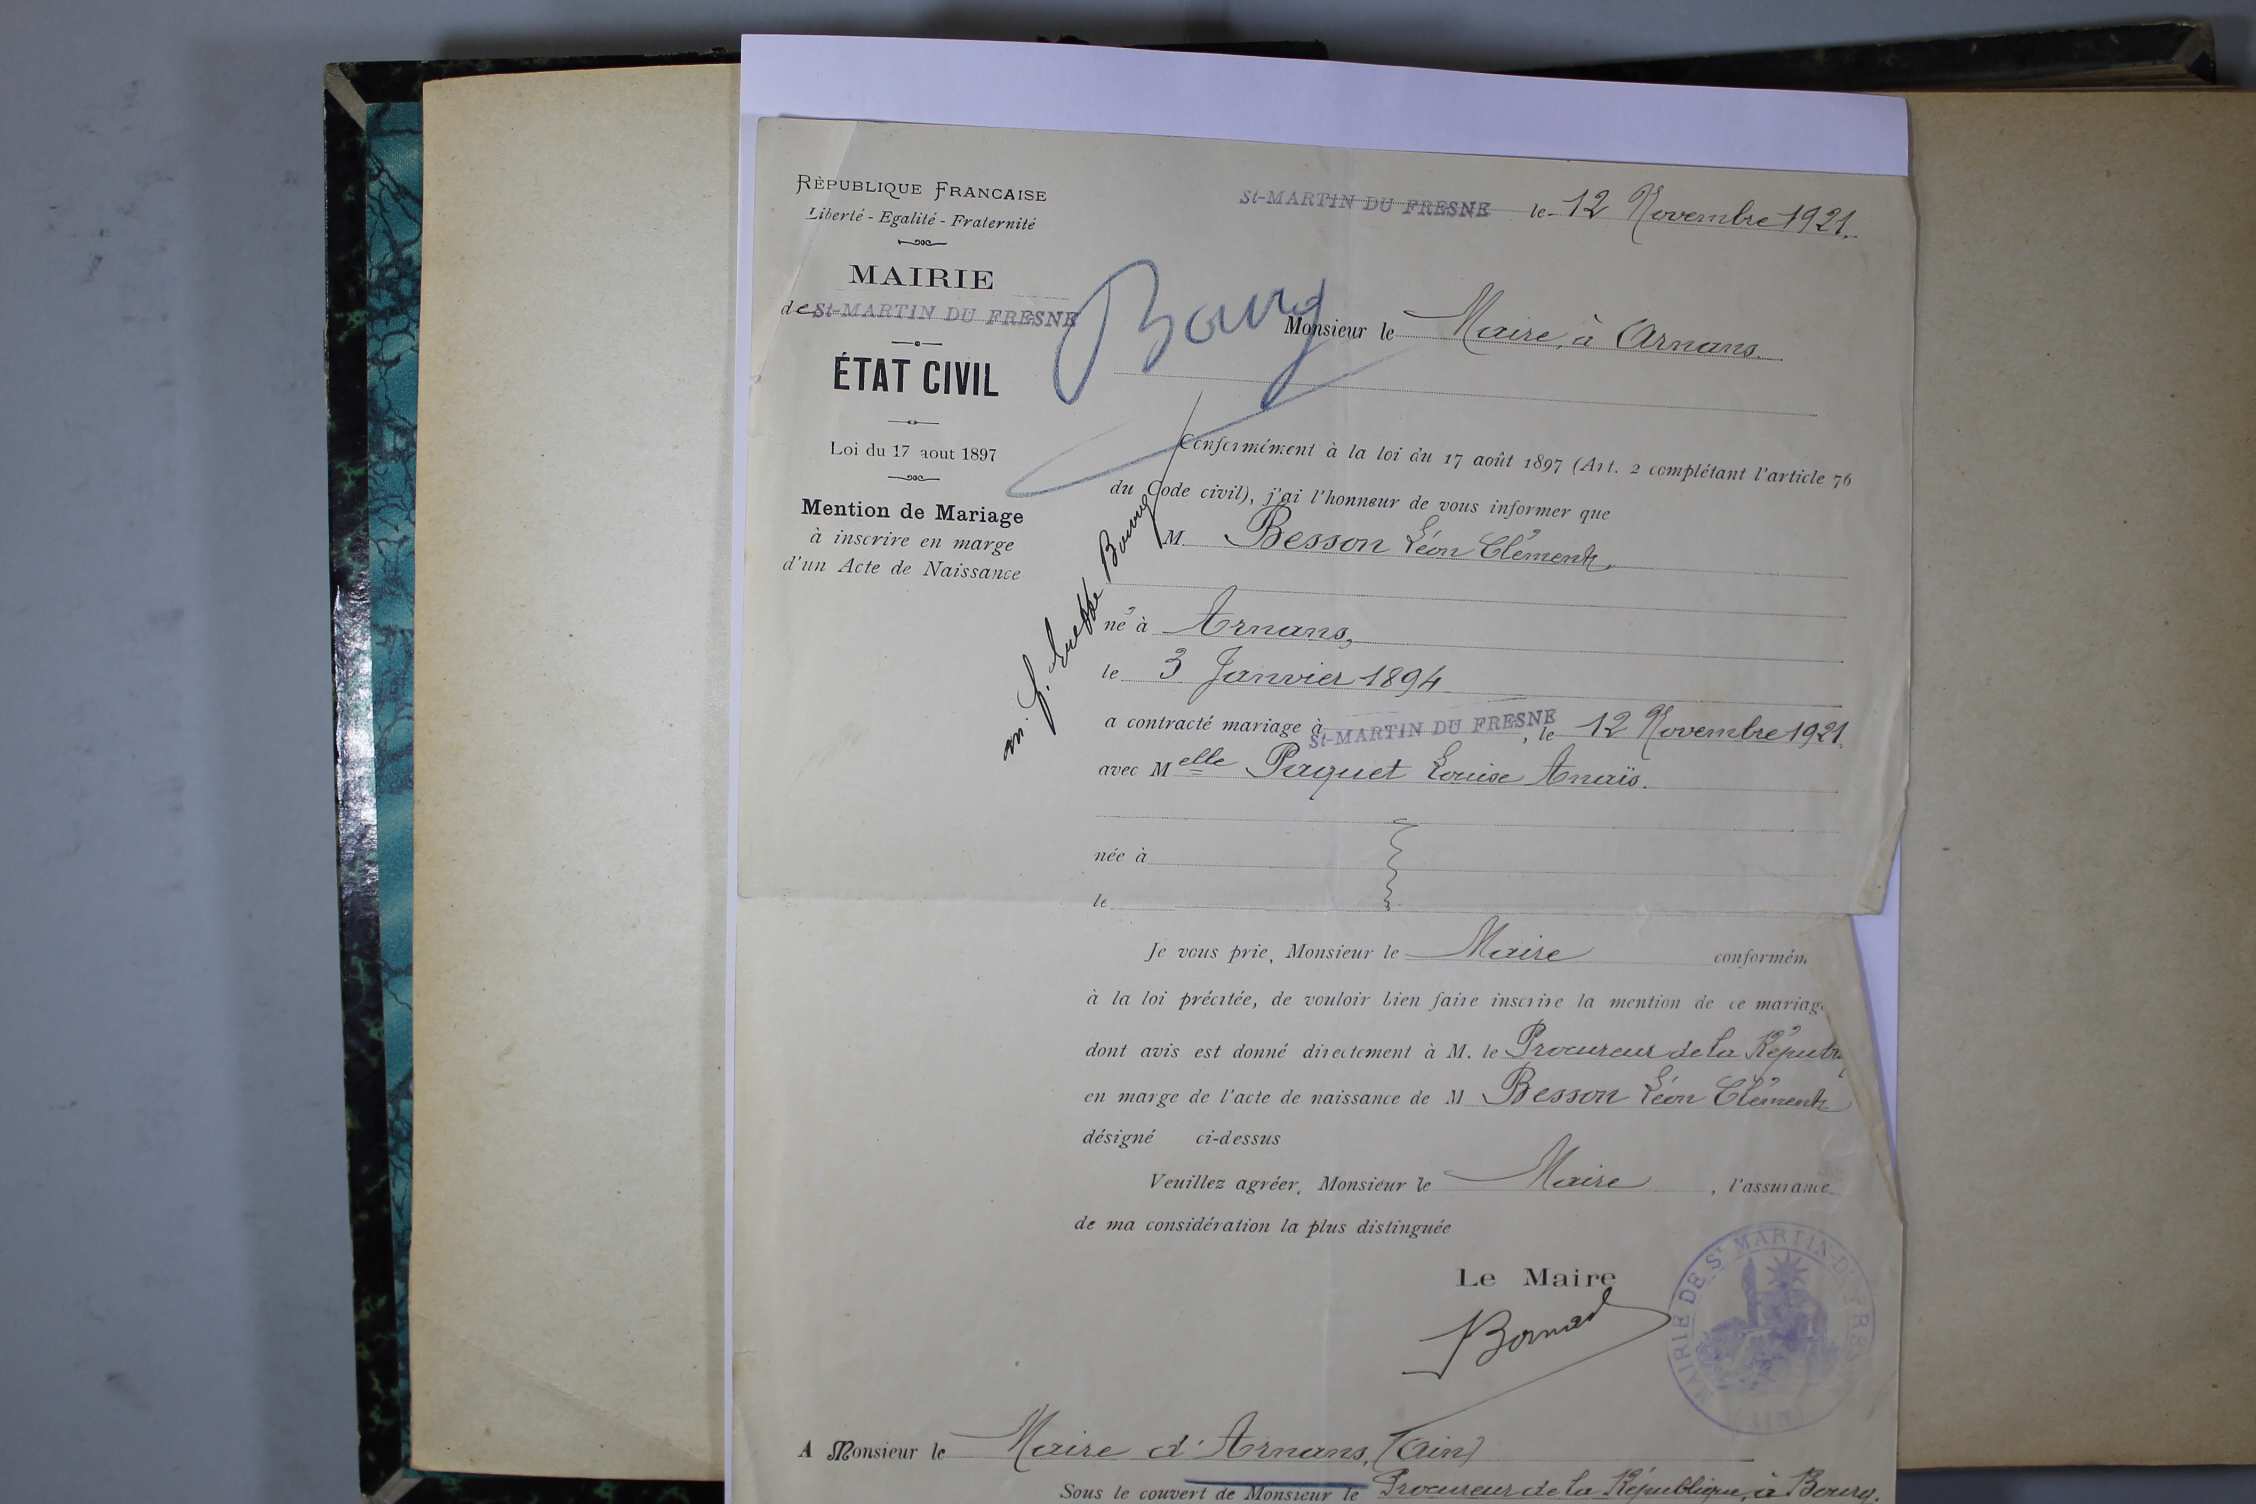 RÉPUBLIQUE FRANCAISE
Liberté - Egalité - Fraternité
MAIRIE
de St-MARTIN DU FRESNE
ÉTAT CIVIL
Loi du 17 aout 1897
Mention de Mariage
à inscrire en marge
d'un Acte de Naissance
St-MARTIN DU FRESNE le 12 Novembre 1921.
Bourg
Monsieur le Maire, à Arnans.
Conformément à la loi du 17 août 1897 (Art. 2 complétant l'article 76
du Code civil), j'ai l'honneur de vous informer que
M Besson Léon Clément,
né à Arnans,
le 3 Janvier 1894
a contracté mariage à St-MARTIN DU FRESNE, le 12 Novembre 1921.
avec Melle Paquet Louise Anaïs.
née à
le
Bourg
Je vous prie, Monsieur le Maire conformém
à la loi précitée, de vouloir bien faire inscrire la mention de ce mariag
dont avis est donné directement à M. le Procureur de la Républ
en marge de l'acte de naissance de M Besson Léon Clément
désigné ci-dessus
Veuillez agréer, Monsieur le Maire, l'assurance
de ma considération la plus distinguée
Le Maire
MAIRIE DE St MARTIN-DU-FRES
A Monsieur le Maire d'Arnans, (Ain)
Sous le couvert de Monsieur le Procureur de la République, à Bourg.